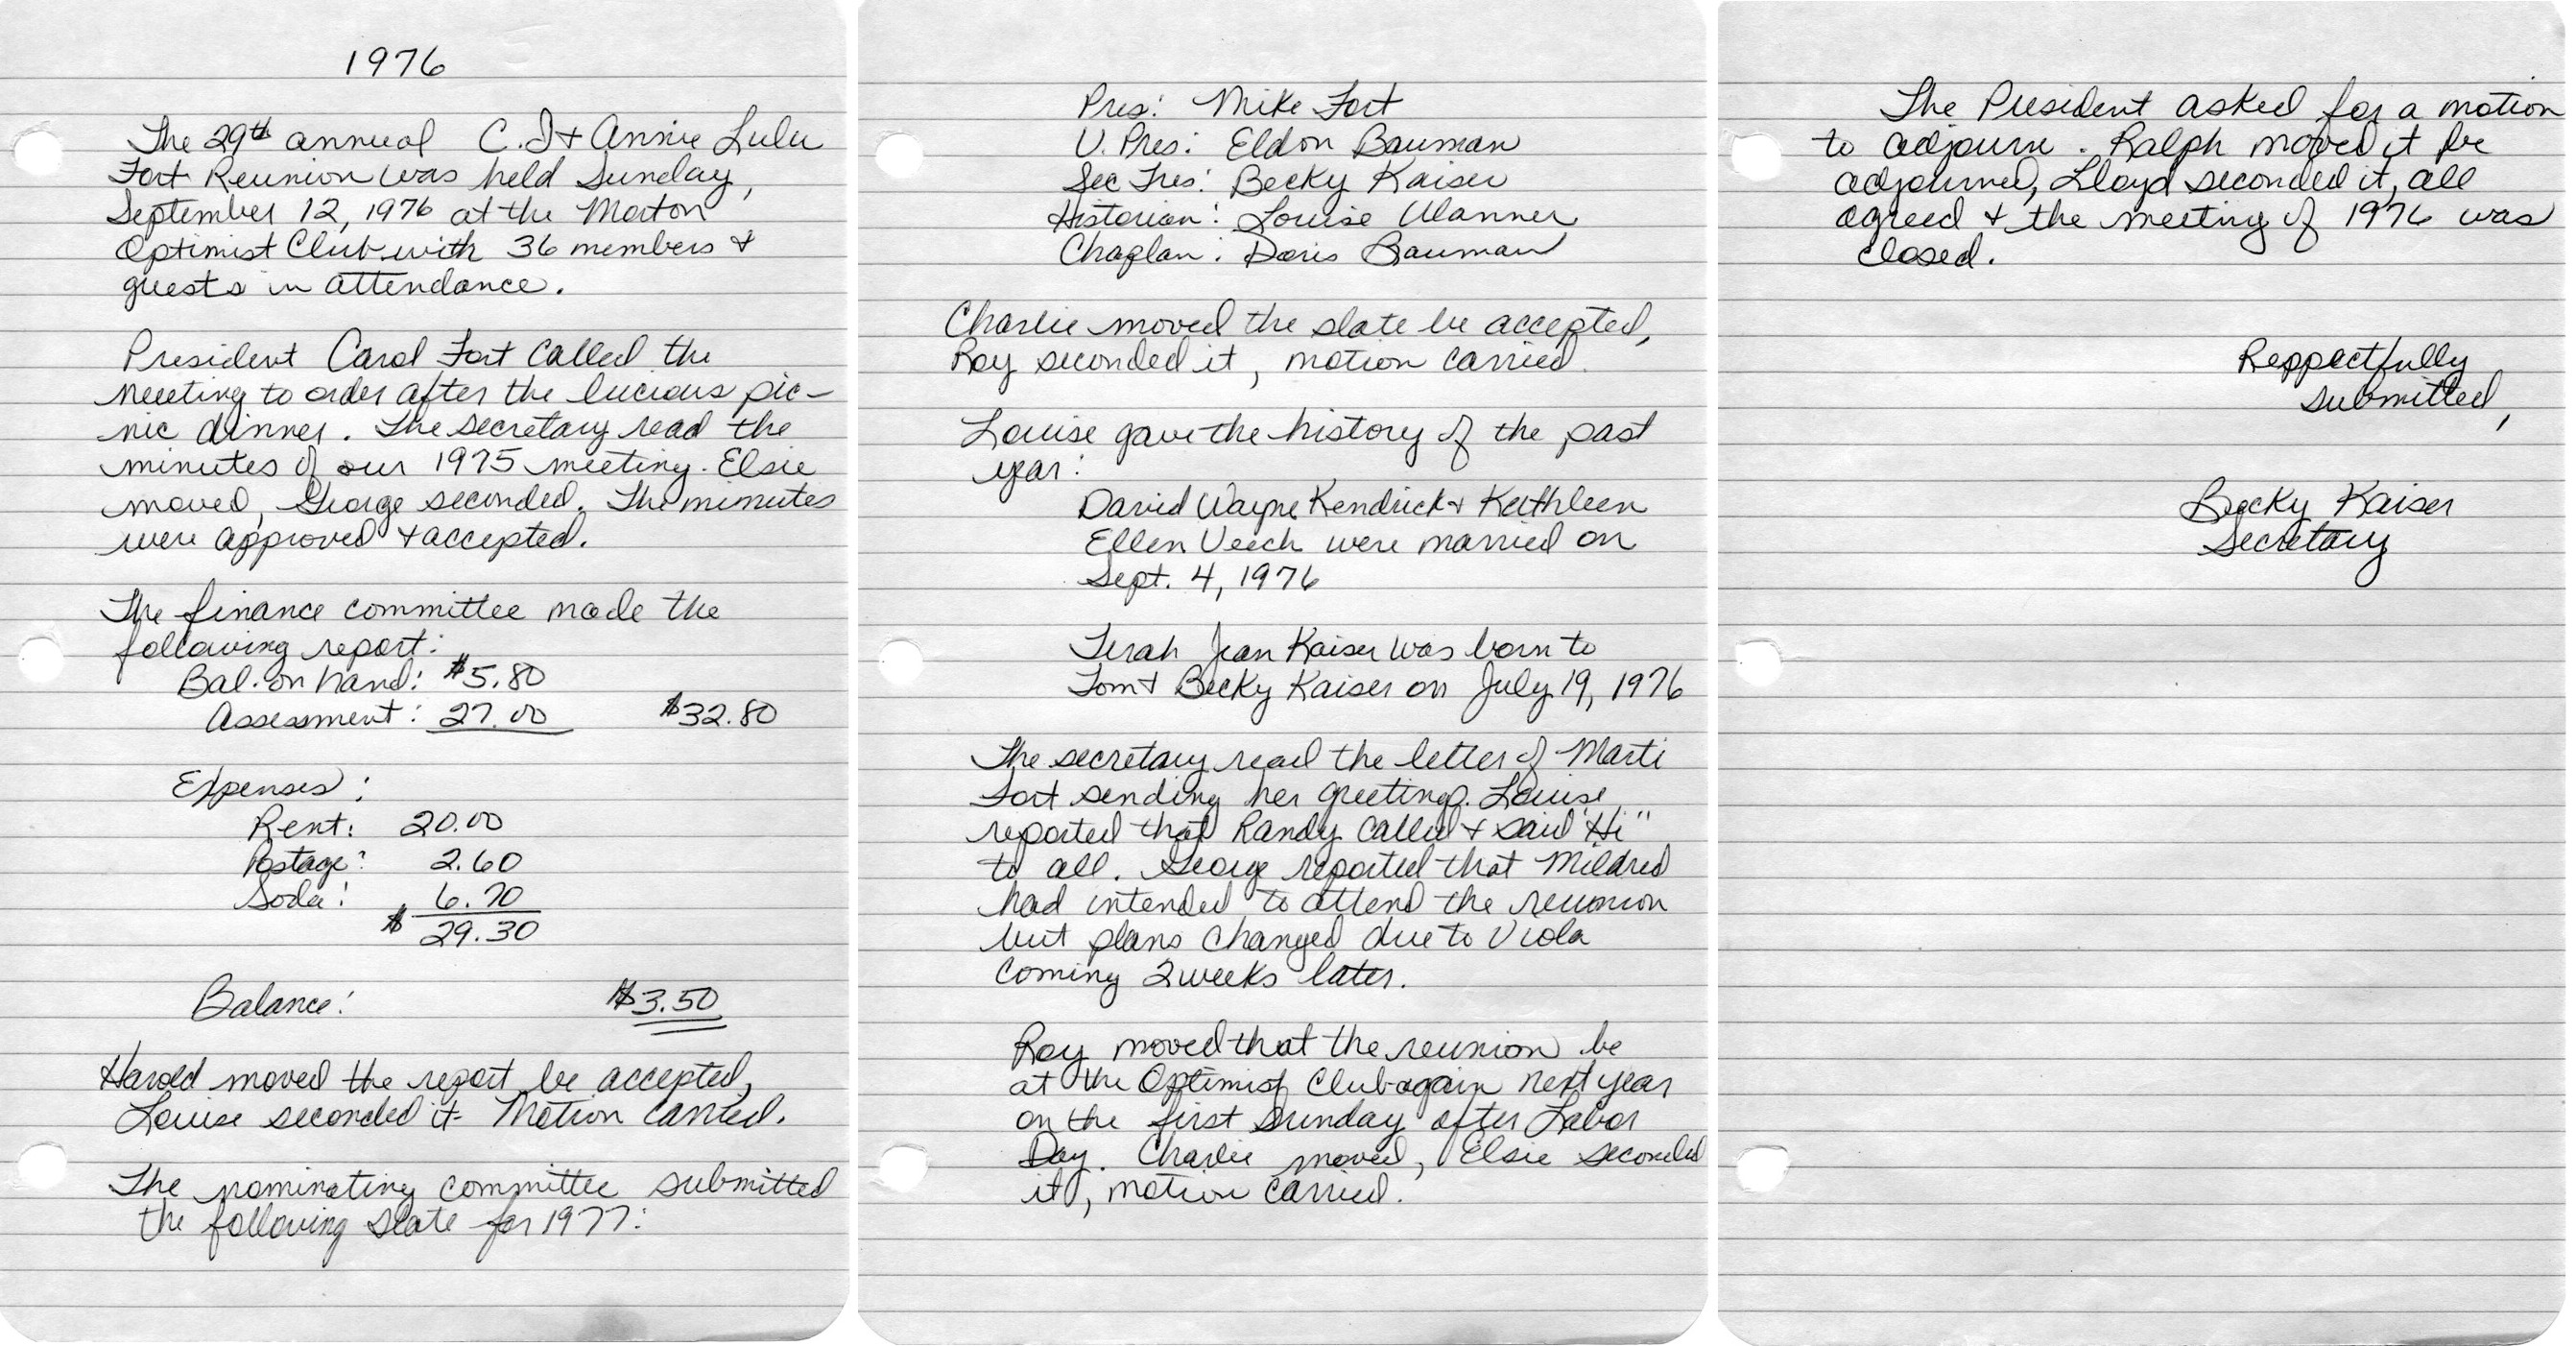 1976
The 29th annual C.I + Annie Lulu
Fort Reunion was held Sunday,
September 12, 1976 at the Morton
Optimist Club with 36 members +
guests in attendance.
President Carol Fort called the
meeting to order after the lucious pic-
nic dinner. The secretary read the
minutes of our 1975 meeting. Elsie
moved, George seconded. The minutes
were approved + accepted.
The finance committee made the
following report:
Bal. on hand: $5.80
Assessment: 27.00 $32.80
Expenses:
Rent: 20.00
Postage: 2.60
Soda: 6.70
$ 29.30
Balance: $3.50
Harold moved the report be accepted,
Louise seconded it - Motion carried.
The nominating committee submitted
the following slate for 1977:
Pres: Mike Fort
V. Pres: Eldon Bauman
Sec Tres: Becky Kaiser
Historian: Louise Wanner
Chaplan: Doris Bauman
Charlie moved the slate be accepted,
Roy seconded it, motion carried.
Louise gave the history of the past
year:
David Wayne Kendrick + Kathleen
Ellen Veech were married on
Sept. 4, 1976
Terah Jean Kaiser was born to
Tom + Becky Kaiser on July 19, 1976
The secretary read the letter of Marti
Fort sending her greetings. Louise
reported that Randy called + said "Hi"
to all. George reported that Mildred
had intended to attend the reunion
but plans changed due to Viola
coming 2 weeks later.
Roy moved that the reunion be
at the Optimist Club again next year
on the first Sunday after Labor
Day. Charlie moved, Elsie seconded
it, motion carried.
The President asked for a motion
to adjourn. Ralph moved it be
adjourned, Lloyd seconded it, all
agreed + the meeting of 1976 was
closed.
Reppectfully
submitted,
Becky Kaiser
Secretary